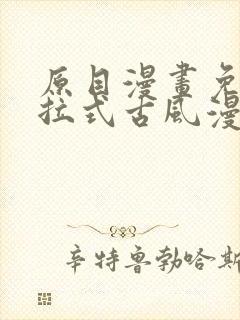 原目漫畫免
拉式古風漫
辛特魯勃哈斯